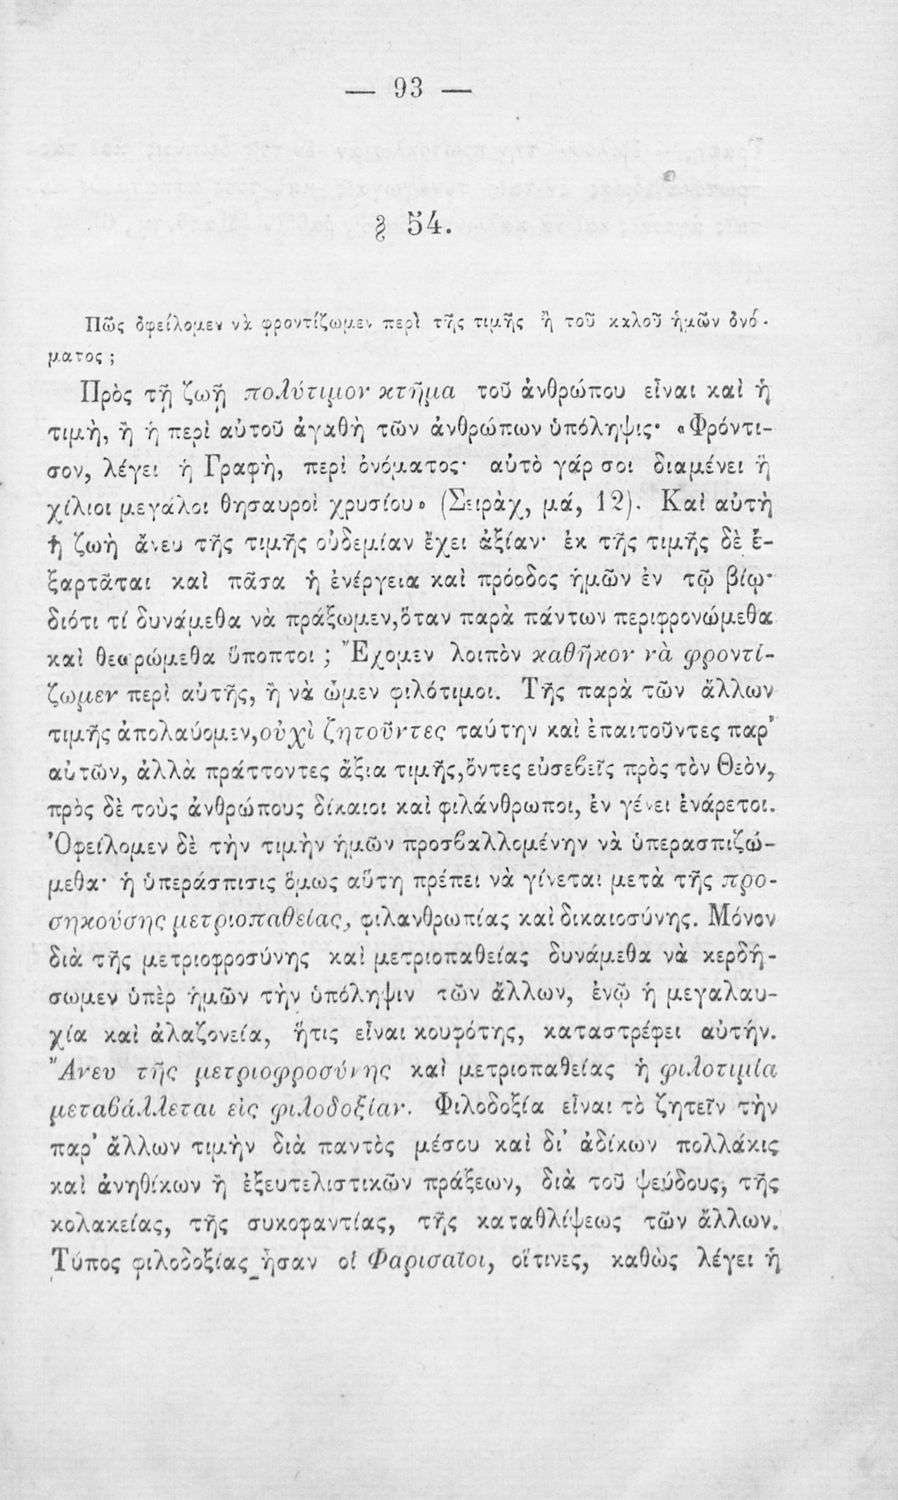 — 93 —
§ 54.
Πῶς ὀφείλομεν νὰ φροντίζωμεν περὶ τῆς τιμῆς ἢ τοῦ καλοῦ ἡμῶν ὀνό-
ματος ;
Πρὸς τῇ ζωῇ πολύτιμον κτῆμα τοῦ ἀνθρώπου εἶναι καὶ ἡ
τιμὴ, ἢ ἡ περὶ αὐτοῦ ἀγαθὴ τῶν ἀνθρώπων ὑπόληψις· «Φρόντι-
σον, λέγει ἡ Γραφὴ, περὶ ὀνόματος· αὐτὸ γάρ σοι διαμένει ἢ
χίλιοι μεγάλοι θησαυροὶ χρυσίου» (Σειρὰχ, μά, 12). Καὶ αὐτὴ
ἡ ζωὴ ἄνευ τῆς τιμῆς οὐδεμίαν ἔχει ἀξίαν· ἐκ τῆς τιμῆς δὲ ἐ-
ξαρτᾶται καὶ πᾶσα ἡ ἐνέργεια καὶ πρόοδος ἡμῶν ἐν τῷ βίῳ·
διότι τί δυνάμεθα νὰ πράξωμεν,ὅταν παρὰ πάντων περιφρονώμεθα
καὶ θεωρώμεθα ὕποπτοι ; Ἔχομεν λοιπὸν καθῆκον νὰ φροντί-
ζωμεν περὶ αὐτῆς, ἢ νὰ ὦμεν φιλότιμοι. Τῆς παρὰ τῶν ἄλλων
τιμῆς ἀπολαύομεν,οὐχὶ ζητοῦντες ταύτην καὶ ἐπαιτοῦντες παρ'
αὐτῶν, ἀλλὰ πράττοντες ἄξια τιμῆς,ὄντες εὐσεβεῖς πρὸς τὸν Θεὸν,
πρὸς δὲ τοὺς ἀνθρώπους δίκαιοι καὶ φιλάνθρωποι, ἐν γένει ἐνάρετοι.
Ὀφείλομεν δὲ τὴν τιμὴν ἡμῶν προσβαλλομένην νὰ ὑπερασπιζώ-
μεθα· ἡ ὑπεράσπισις ὅμως αὕτη πρέπει νὰ γίνεται μετὰ τῆς προ-
σηκούσης μετριοπαθείας, φιλανθρωπίας καὶ δικαιοσύνης. Μόνον
διὰ τῆς μετριοφροσύνης καὶ μετριοπαθείας δυνάμεθα νὰ κερδή-
σωμεν ὑπὲρ ἡμῶν τὴν ὑπόληψιν τῶν ἄλλων, ἐνῷ ἡ μεγαλαυ-
χία καὶ ἀλαζονεία, ἥτις εἶναι κουφότης, καταστρέφει αὐτήν.
Ἄνευ τῆς μετριοφροσύνης καὶ μετριοπαθείας ἡ φιλοτιμία
μεταβάλλεται εἰς φιλοδοξίαν. Φιλοδοξία εἶναι τὸ ζητεῖν τὴν
παρ' ἄλλων τιμὴν διὰ παντὸς μέσου καὶ δι' ἀδίκων πολλάκις
καὶ ἀνηθίκων ἢ ἐξευτελιστικῶν πράξεων, διὰ τοῦ ψεύδους, τῆς
κολακείας, τῆς συκοφαντίας, τῆς καταθλίψεως τῶν ἄλλων.
Τύπος φιλοδοξίας ἦσαν οἱ Φαρισαῖοι, οἵτινες, καθὼς λέγει ἡ